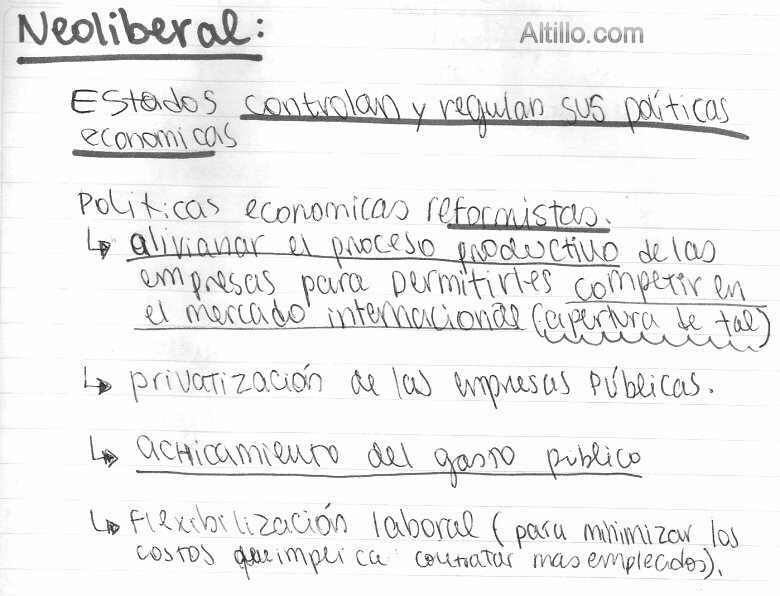 Neoliberal:
Altillo.com
Estados controlan y regulan sus políticas
economicas
Politicas economicas reformistas.
↳ alivianar el proceso productivo de las
empresas para permitirles competir en
el mercado internacional (apertura de tal)
↳ privatización de las empresas públicas.
↳ achicamiento del gasto publico
↳ Flexibilización laboral (para minimizar los
costos que implica contratar mas empleados).